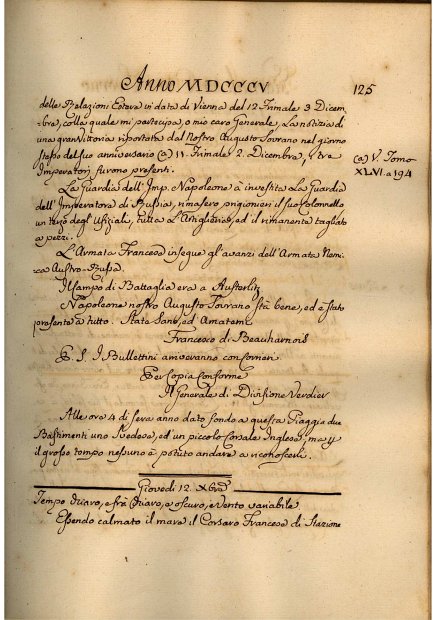 Anno MDCCCV
125
delle Relazioni Estere in data di Vienna del 12 Frimale 3 Dicem-
bre, colla quale mi partecipa, o mio caro Generale, La notizia di
una gran Vittoria riportata dal Nostro Augusto Sovrano nel giorno
stesso del suo anniversario (a) 11 Frimale 2. Dicembre, i tre
Imperatori furono presenti.
(a) V. Tomo
XLVI. a 194
La Guardia dell' Imp. Napoleone à investita La Guardia
dell' Imperatore di Russia, rimasero prigionieri il suo Colonnello
un terzo degl' Ufiziali, tutta L'Artiglieria, ed il rimanente tagliato
a pezzi.
L'Armata Francese insegue gl' avanzi dell' Armata Nemi-
ca Austro-Russa.
Il Campo di Battaglia era a Austerlitz
Napoleone nostro Augusto Sovrano stà bene, ed è stato
presente a tutto. State Sano, ed Amatemi
Francesco di Beauharnois
P. S. I Bullettini arriveranno con
Per Copia Conforme
Il Generale di Divisione Verdier
Alle ore 4 di sera anno dato fondo a questa Piaggia due
Bastimenti uno Svedese, ed un piccolo Corsale Inglese, ma
il grosso tempo nessuno à potuto andare a riconoscerli.
Giovedì 12. Xbre
Tempo chiaro, e frà chiaro, e oscuro, e Vento variabile
Essendo calmato il mare il Corsaro Francese di Stazione